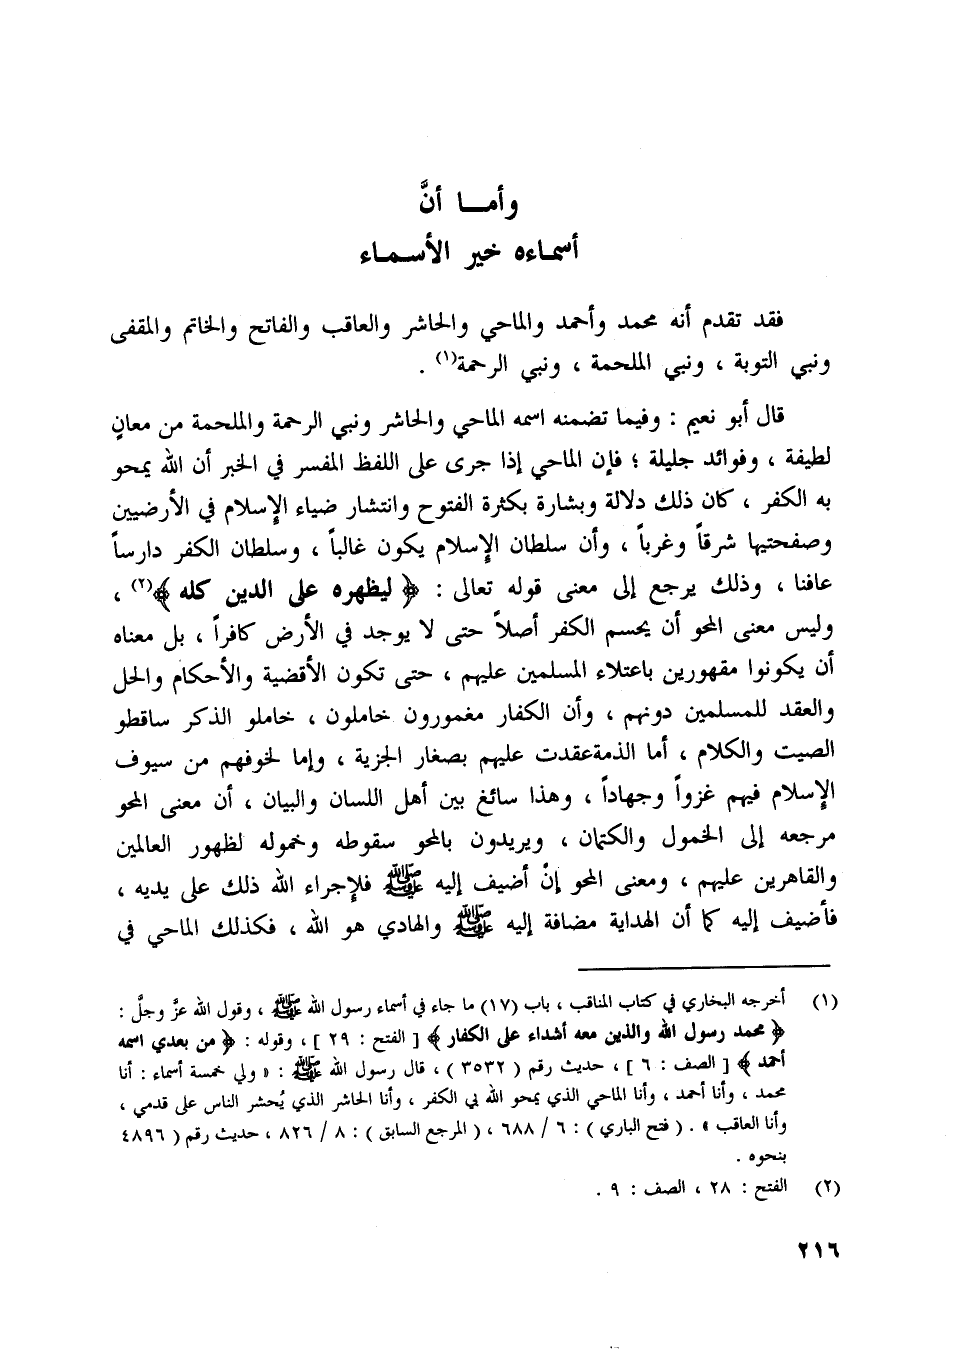 وأمـــا أنَّ
أسمـاءه خير الأسـمـاء
فقد تقدم أنه محمد وأحمد والماحي والحاشر والعاقب والفاتح والخاتم والمقفى
ونبي التوبة ، ونبي الملحمة ، ونبي الرحمة(١) .
قال أبو نعيم : وفيما تضمنه اسمه الماحي والحاشر ونبي الرحمة والملحمة من معانٍ
لطيفة ، وفوائد جليلة ؛ فإن الماحي إذا جرى على اللفظ المفسر في الخبر أن الله يمحو
به الكفر ، كان ذلك دلالة وبشارة بكثرة الفتوح وانتشار ضياء الإسلام في الأرضيين
وصفحتيها شرقاً وغرباً ، وأن سلطان الإسلام يكون غالباً ، وسلطان الكفر دارساً
عافنا ، وذلك يرجع إلى معنى قوله تعالى : ﴿ ليظهره على الدين كله ﴾(٢) ،
وليس معنى المحو أن يحسم الكفر أصلاً حتى لا يوجد في الأرض كافراً ، بل معناه
أن يكونوا مقهورين باعتلاء المسلمين عليهم ، حتى تكون الأقضية والأحكام والحل
والعقد للمسلمين دونهم ، وأن الكفار مغمورون خاملون ، خاملو الذكر ساقطو
الصيت والكلام ، أما الذمةعقدت عليهم بصغار الجزية ، وإما لخوفهم من سيوف
الإسلام فيهم غزواً وجهاداً ، وهذا سائغ بين أهل اللسان والبيان ، أن معنى المحو
مرجعه إلى الخمول والكتمان ، ويريدون بالمحو سقوطه وخموله لظهور العالمين
والقاهرين عليهم ، ومعنى المحو إنْ أضيف إليه ﷺ فلإجراء الله ذلك على يديه ،
فأضيف إليه كما أن الهداية مضافة إليه ﷺ والهادي هو الله ، فكذلك الماحي في
(١) أخرجه البخاري في كتاب المناقب ، باب (١٧) ما جاء في أسماء رسول الله ﷺ ، وقول الله عزَّ وجلَّ :
﴿ محمد رسول الله والذين معه أشداء على الكفار ﴾ [ الفتح : ٢٩ ] ، وقوله : ﴿ من بعدي اسمه
أحمد ﴾ [ الصف : ٦ ] ، حديث رقم ( ٣٥٣٢ ) ، قال رسول الله ﷺ : « ولي خمسة أسماء : أنا
محمد ، وأنا أحمد ، وأنا الماحي الذي يمحو الله بي الكفر ، وأنا الحاشر الذي يُحشر الناس على قدمي ،
وأنا العاقب » . ( فتح الباري ) : ٦ / ٦٨٨ ، ( المرجع السابق ) : ٨ / ٨٢٦ ، حديث رقم ( ٤٨٩٦
بنحوه .
(٢) الفتح : ٢٨ ، الصف : ٩ .
٢١٦